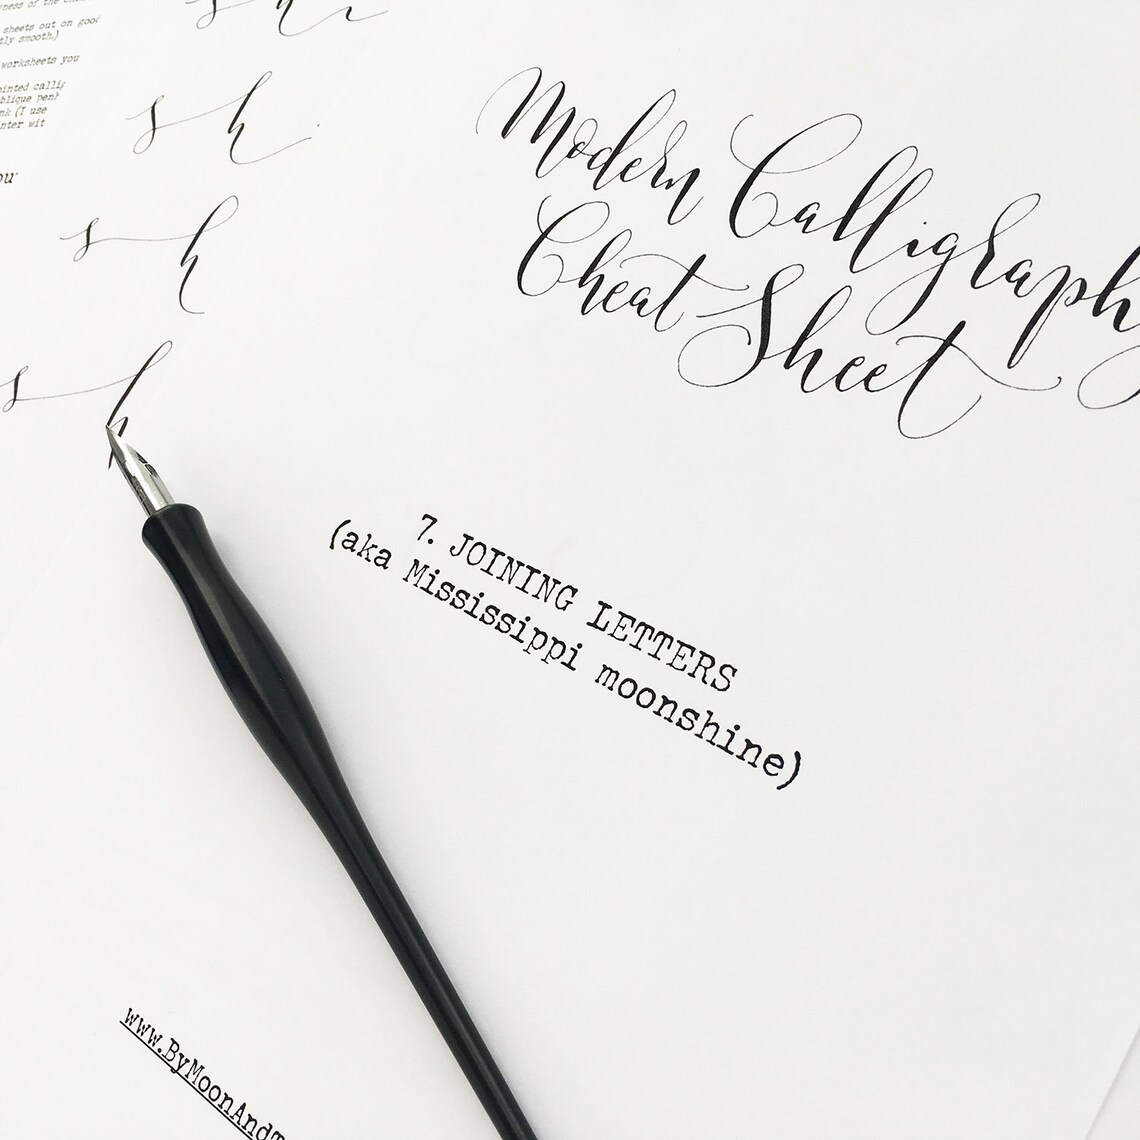 sheets out on good
tly smooth.)
worksheets you
blique pen
nk (I use
s h
s h
s h
s h
Modern Calligraphy
Cheat Sheet
7. JOINING LETTERS
(aka Mississippi moonshine)
www.ByMoonAndT